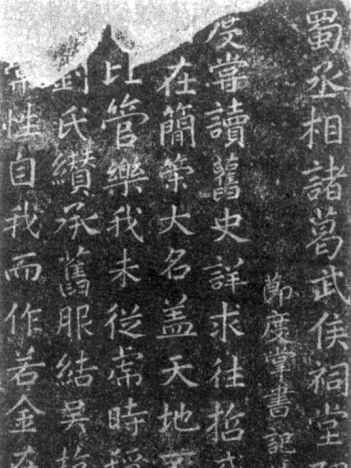 蜀丞相諸葛武侯祠堂
節度掌書記
度嘗讀舊史詳求往哲或
在簡策大名盖天地不
比管樂我未從虎時稱
劉氏纘承舊服結吳抗
常性自我而作若金在